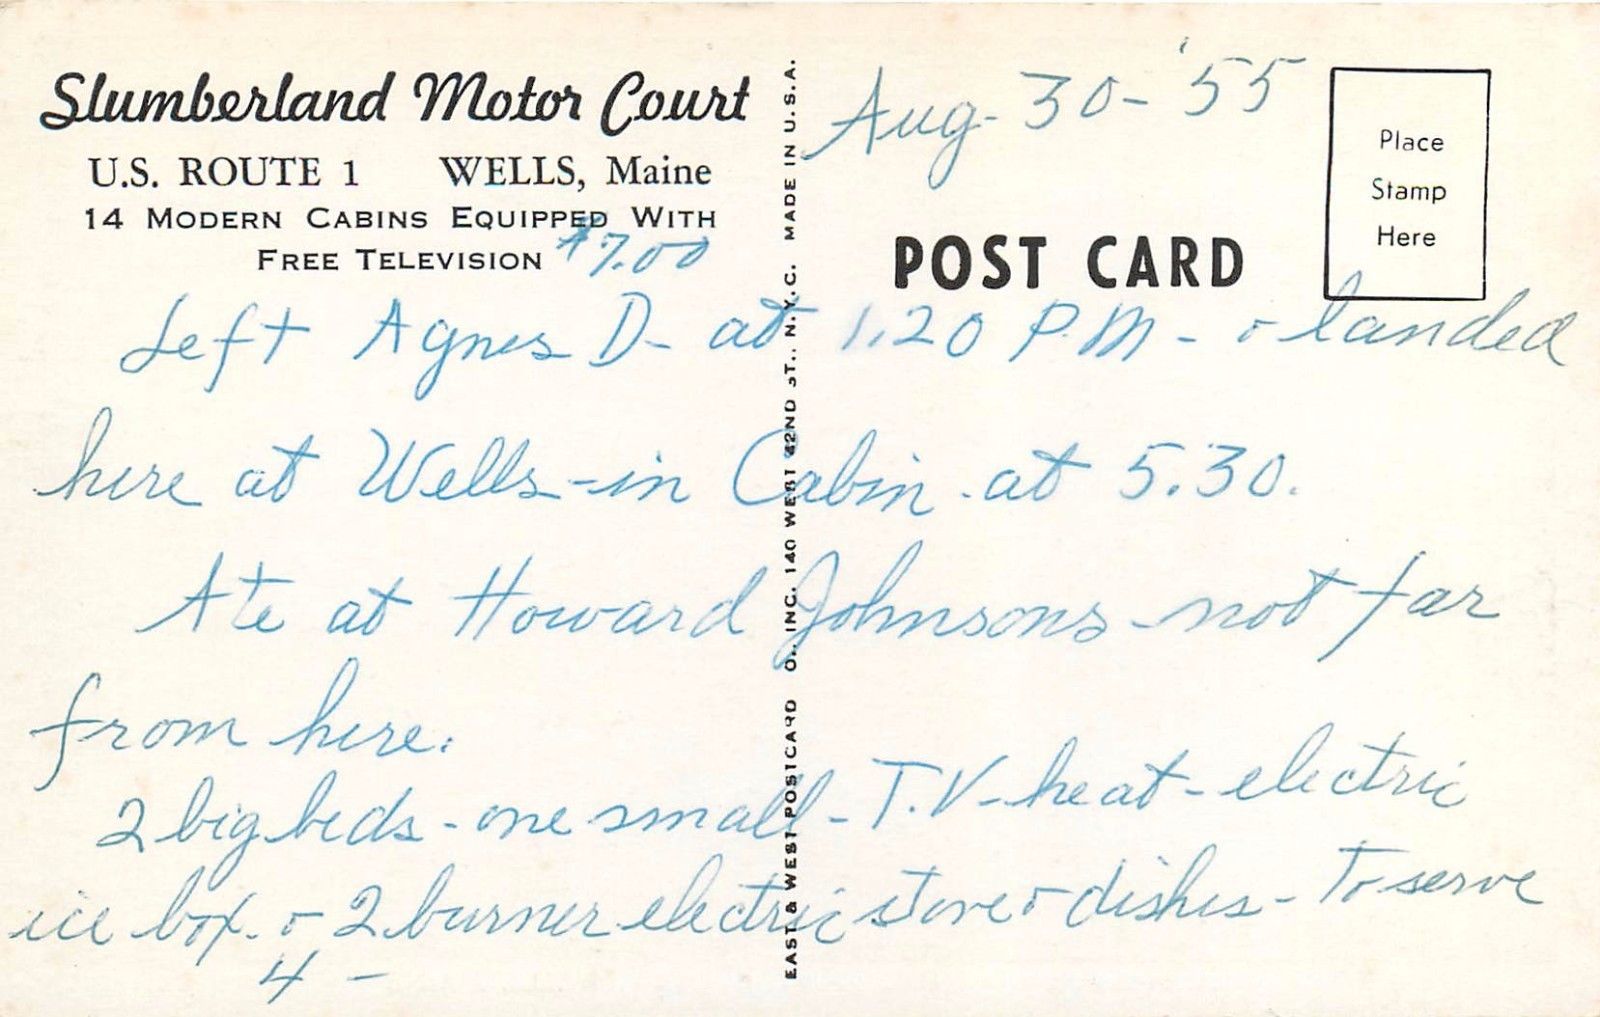 Slumberland Motor Court
U.S. ROUTE 1 WELLS, Maine
14 MODERN CABINS EQUIPPED WITH
FREE TELEVISION $7.00
Aug- 30- '55
Place
Stamp
Here
POST CARD
Left Agnes D- at 1.20 P.M - & landed
here at Wells-in Cabin at 5.30.
Ate at Howard Johnsons - not far
from here.
2 big beds - one small - T.V - heat - electric
ice box. & 2 burner electric stove & dishes - To serve
4 -
EAST & WEST POSTCARD O., INC. 140 WEST 42ND ST., N.Y.C. MADE IN U.S.A.